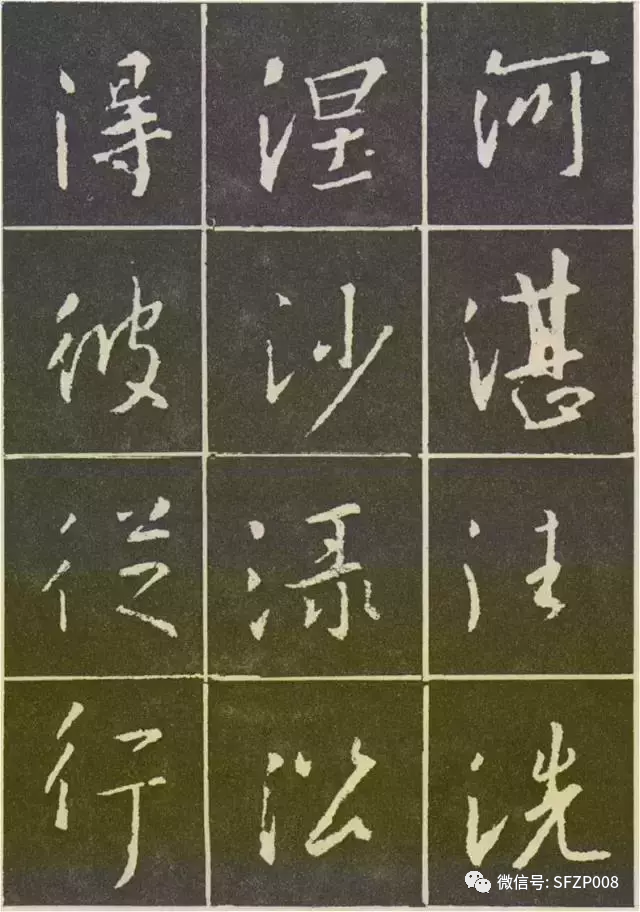 河湛洗
涅沙
得彼從行
微信号: SFZP008